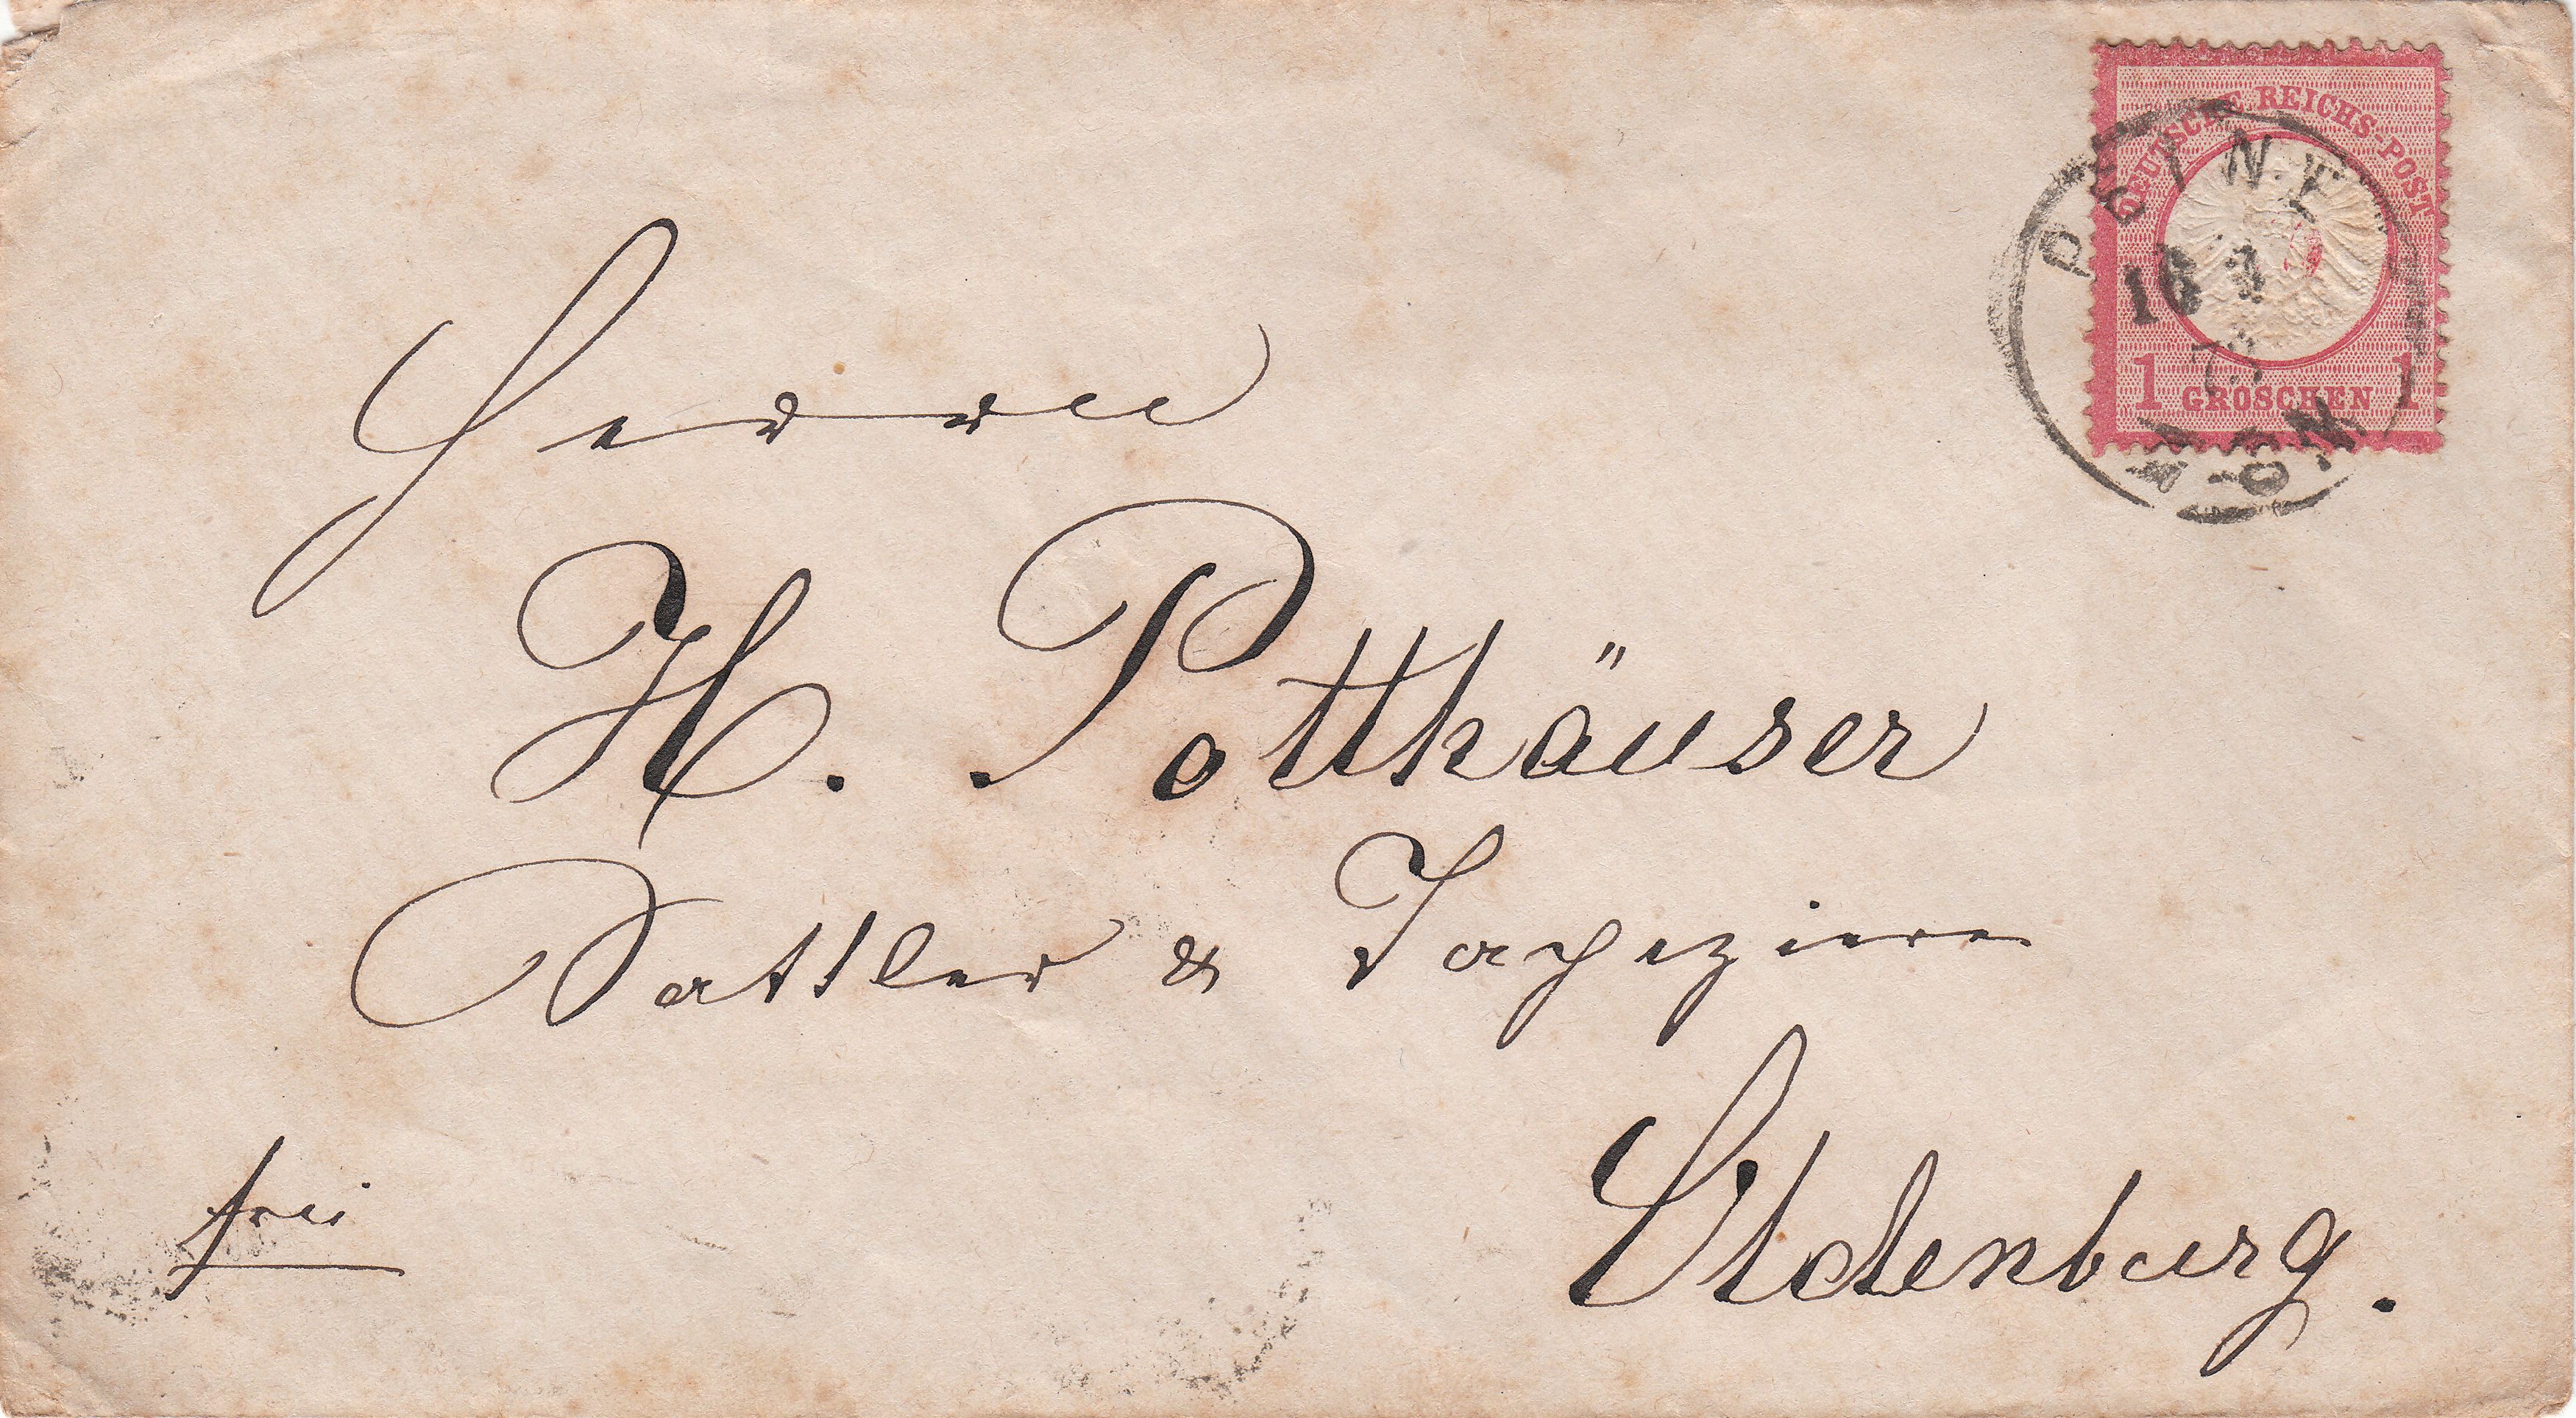 DEUTSCHE REICHS-POST
PEINE
16 1
73
1 GROSCHEN 1
Herrn
H. Potthäuser
Sattler & Tapezierer
Oldenburg.
frei